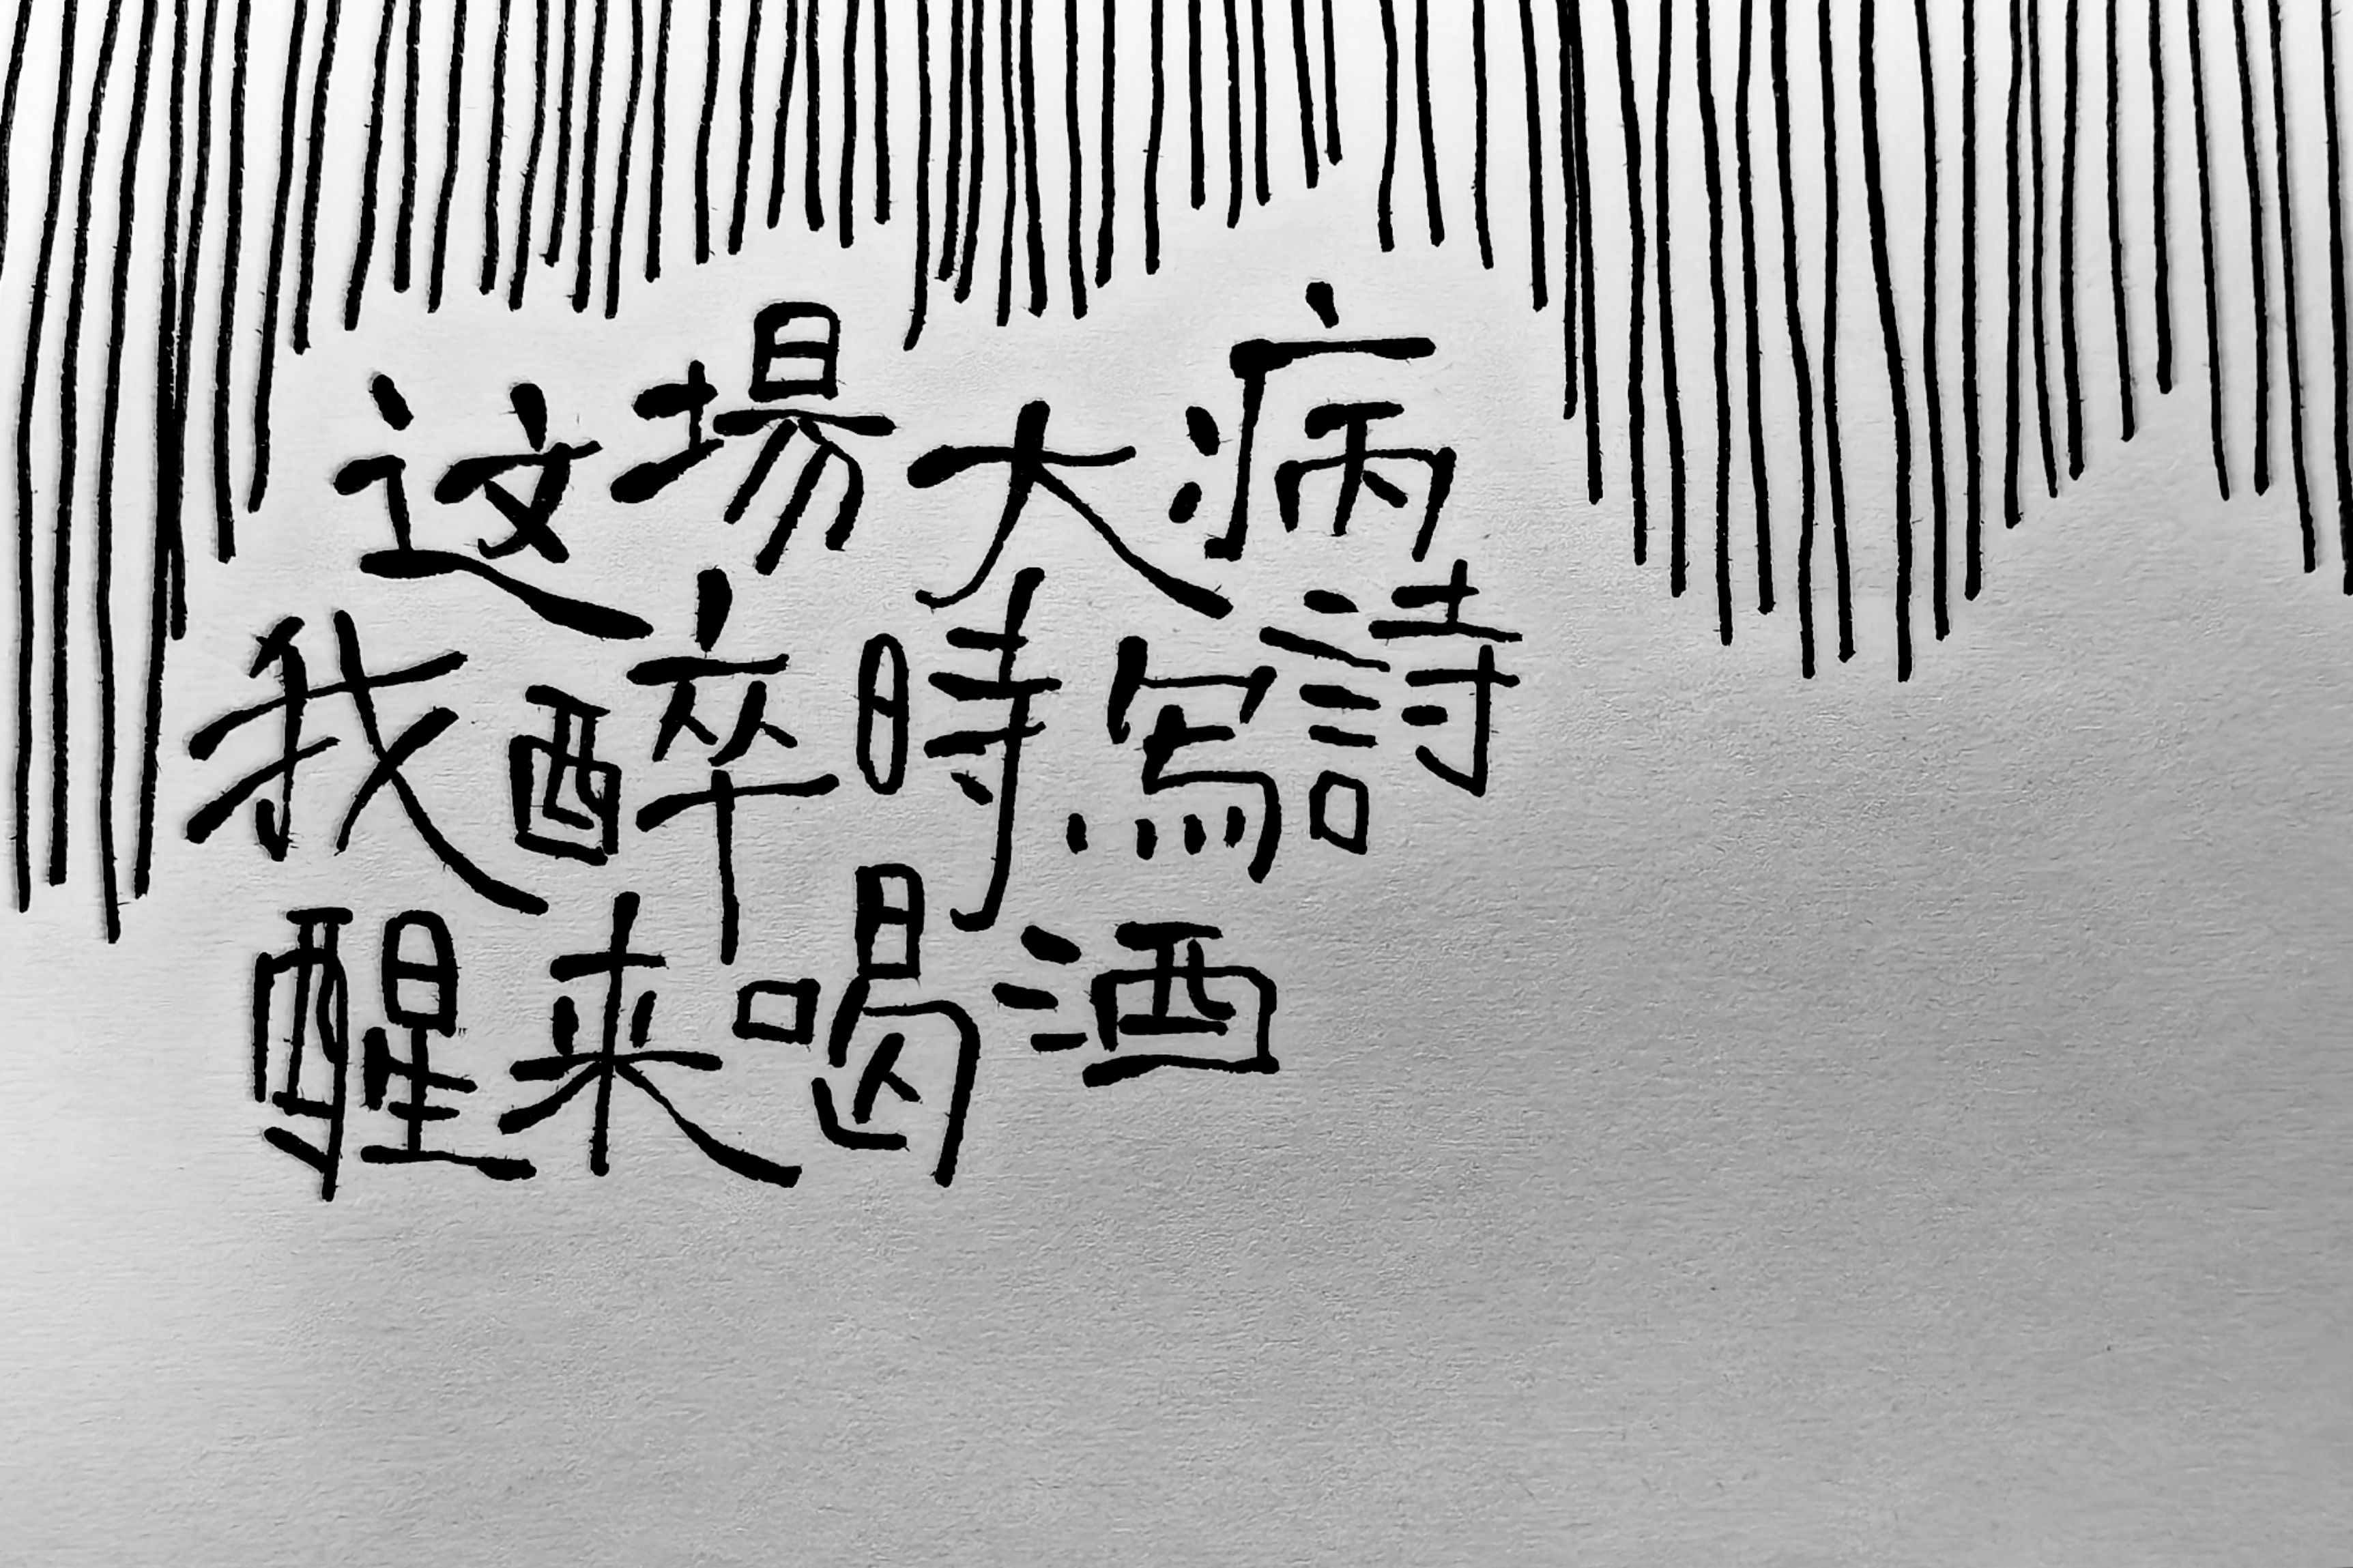 这場大病
我醉時寫詩
醒来喝酒